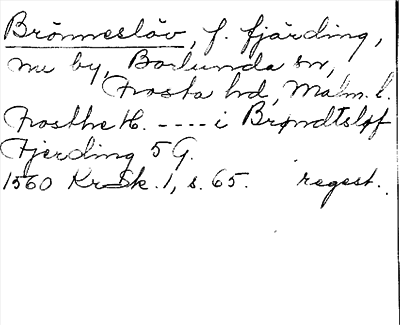 Brönneslöv, f. fjärding,
nu by, Borlunda sn,
Frosta hd, Malm. l.
Frosthe H. ---- i Brøndtsløf
Fjerding 5 G.
1560 KrSk. 1, s. 65. regest.